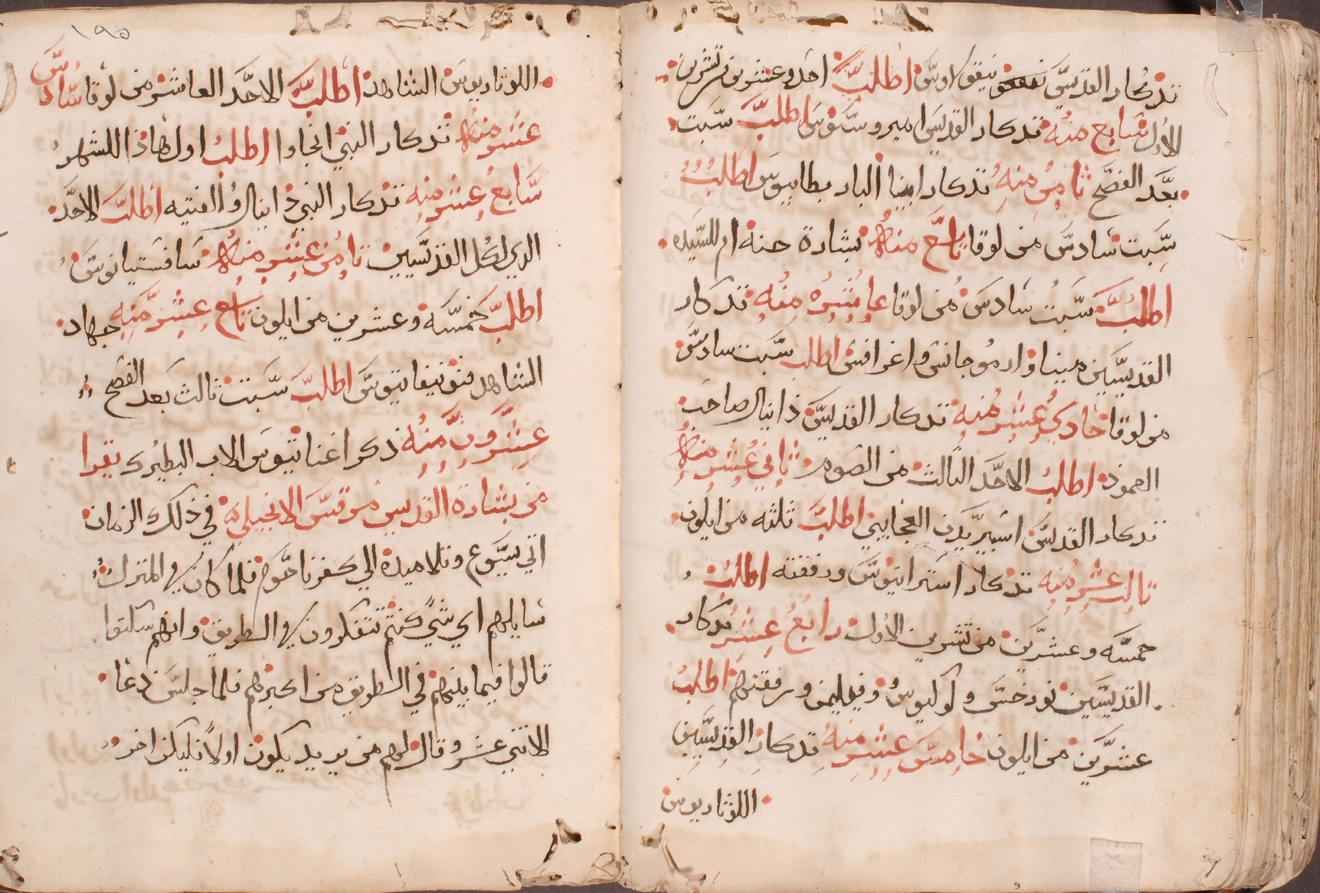 تذكار القديس نيقولاوس اطلب احد وعشرين من تشرين
الاول سابع منه تذكار القديس امبروسيوس اطلب سبت
بعد الفصح ثامن منه تذكار ابينا البار بطابيوس اطلب
سبت سادس من لوقا تاسع منه بشارة حنه ام السيده
اطلب سبت سادس من لوقا عاشره منه تذكار
القديسين مينا وارموجانس واغرافس اطلب سبت سادس
من لوقا حادي عشر منه تذكار القديس دانيال صاحب
العمود اطلب الاحد الثالث من الصوم ثاني عشر منه
تذكار القديس اسبيريدن العجايبي اطلب ثلثه من ايلون
ثالث عشر منه تذكار استراتيوس ورفقته اطلب
خمسه وعشرين من تشرين الاول رابع عشر تذكار
القديسين ولوكيوس وفيليمن ورفقتهم اطلب
عشرين من ايلون خامس عشر منه تذكار القديسين
اللوثاريوس
١٩٥
اللوثاريوس الشاهد اطلب الاحد العاشر من لوقا سادس
عشر منه تذكار النبي اجاوا اطلب اول هاذا الشهر
سابع عشر منه تذكار النبي دانيال والفتيه اطلب الاحد
الذي لكل القديسين ثامن عشر منه سافستيانوس
اطلب خمسه وعشرين من ايلون تاسع عشر منه جهاد
الشاهد فونيفاتيوس اطلب سبت ثالث بعد الفصح
عشرون منه ذكر اغناتيوس الاب البطيرك يقرا
من بشارة القديس مرقس الانجيلي في ذلك الزمان
اتي يسوع وتلاميذه الي كفرناحوم فلما كان في المنزل
سايلهم اي شي كنتم تتفكرون في الطريق وانهم سكتوا
قالوا فيما بينهم في الطريق من اكبرهم فلما جلس دعا
الاثني عشر وقال لهم من يريد يكون اولا فليكن اخر